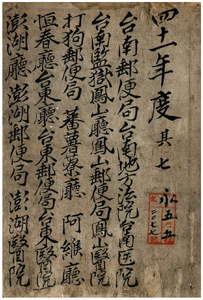 四十一年度 其七
永五五
台南郵便局 台南地方法院 台南医院
台南監獄 鳳山廳 鳳山郵便局 鳳山醫院
打狗郵便局 蕃薯藔廳 阿緱廳
恒春廳 台東廳 台東郵便局 台東醫院
澎湖廳 澎湖郵便局 澎湖醫院